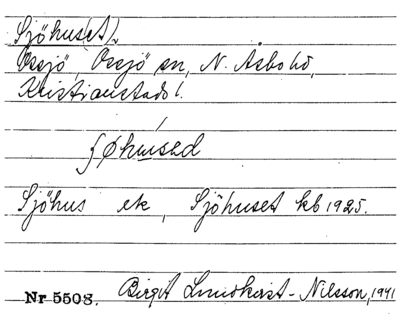 Sjöhus(et),
Össjö, Össjö sn, N. Åsbo hd,
Kristianstads l.
ʃøhused
Sjöhus ek, Sjöhuset kb 1925.
Nr 5508. Birgit Lundkvist-Nilsson, 1941